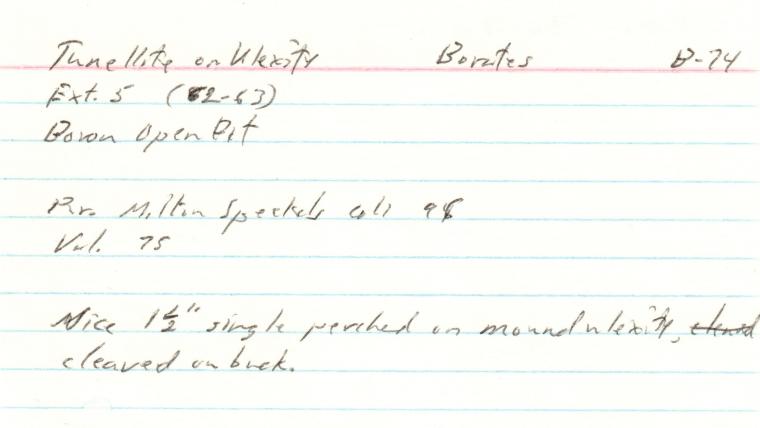 Tunellite on Ulexite Borates B-74
Ext. 5 (62-63)
Boron Open Pit
Pur. Milton Speckels coll 98
Val. 75
Nice 1 1/2" single perched on mound ulexite,
cleaved on back.